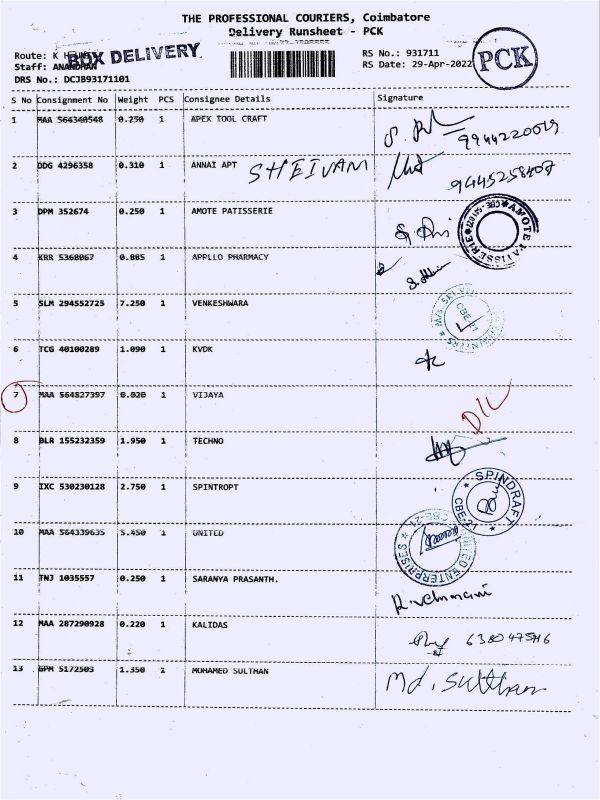 THE PROFESSIONAL COURIERS, Coimbatore
Delivery Runsheet - PCK
BOX DELIVERY
PCK
Route: K
Staff: ANANDHAN
DRS No.: DCJB93171101
RS No.: 931711
RS Date: 29-Apr-2022
S No Consignment No Weight PCS Consignee Details Signature
1 MAA 564340548 0.250 1 APEX TOOL CRAFT
9944220019
2 DDG 4296358 0.310 1 ANNAI APT SHEIVAM
3 DPM 352674 0.250 1 AMOTE PATISSERIE
AMOTE PATISSERIE
4 KRR 5368067 0.885 1 APPLLO PHARMACY
5 SLM 294552725 7.250 1 VENKESHWARA
6 TCG 40100289 1.090 1 KVDK
7 MAA 564827397 0.020 1 VIJAYA DIL
8 BLR 155232359 1.950 1 TECHNO
9 IXC 530230128 2.750 1 SPINTROPT
SPINDRAFT CBE-21
10 MAA 564339635 5.450 1 UNITED
UNITED ENTERPRISES CBE-21
11 TNJ 1035557 0.250 1 SARANYA PRASANTH.
12 MAA 287290928 0.220 1 KALIDAS
13 GPM 5172503 1.350 1 MOHAMED SULTHAN Md. Sulthan